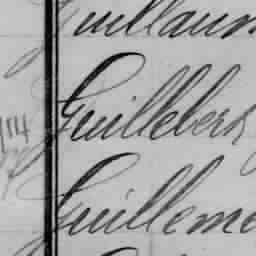 Guillaum
Guillebert
114
Guilleme